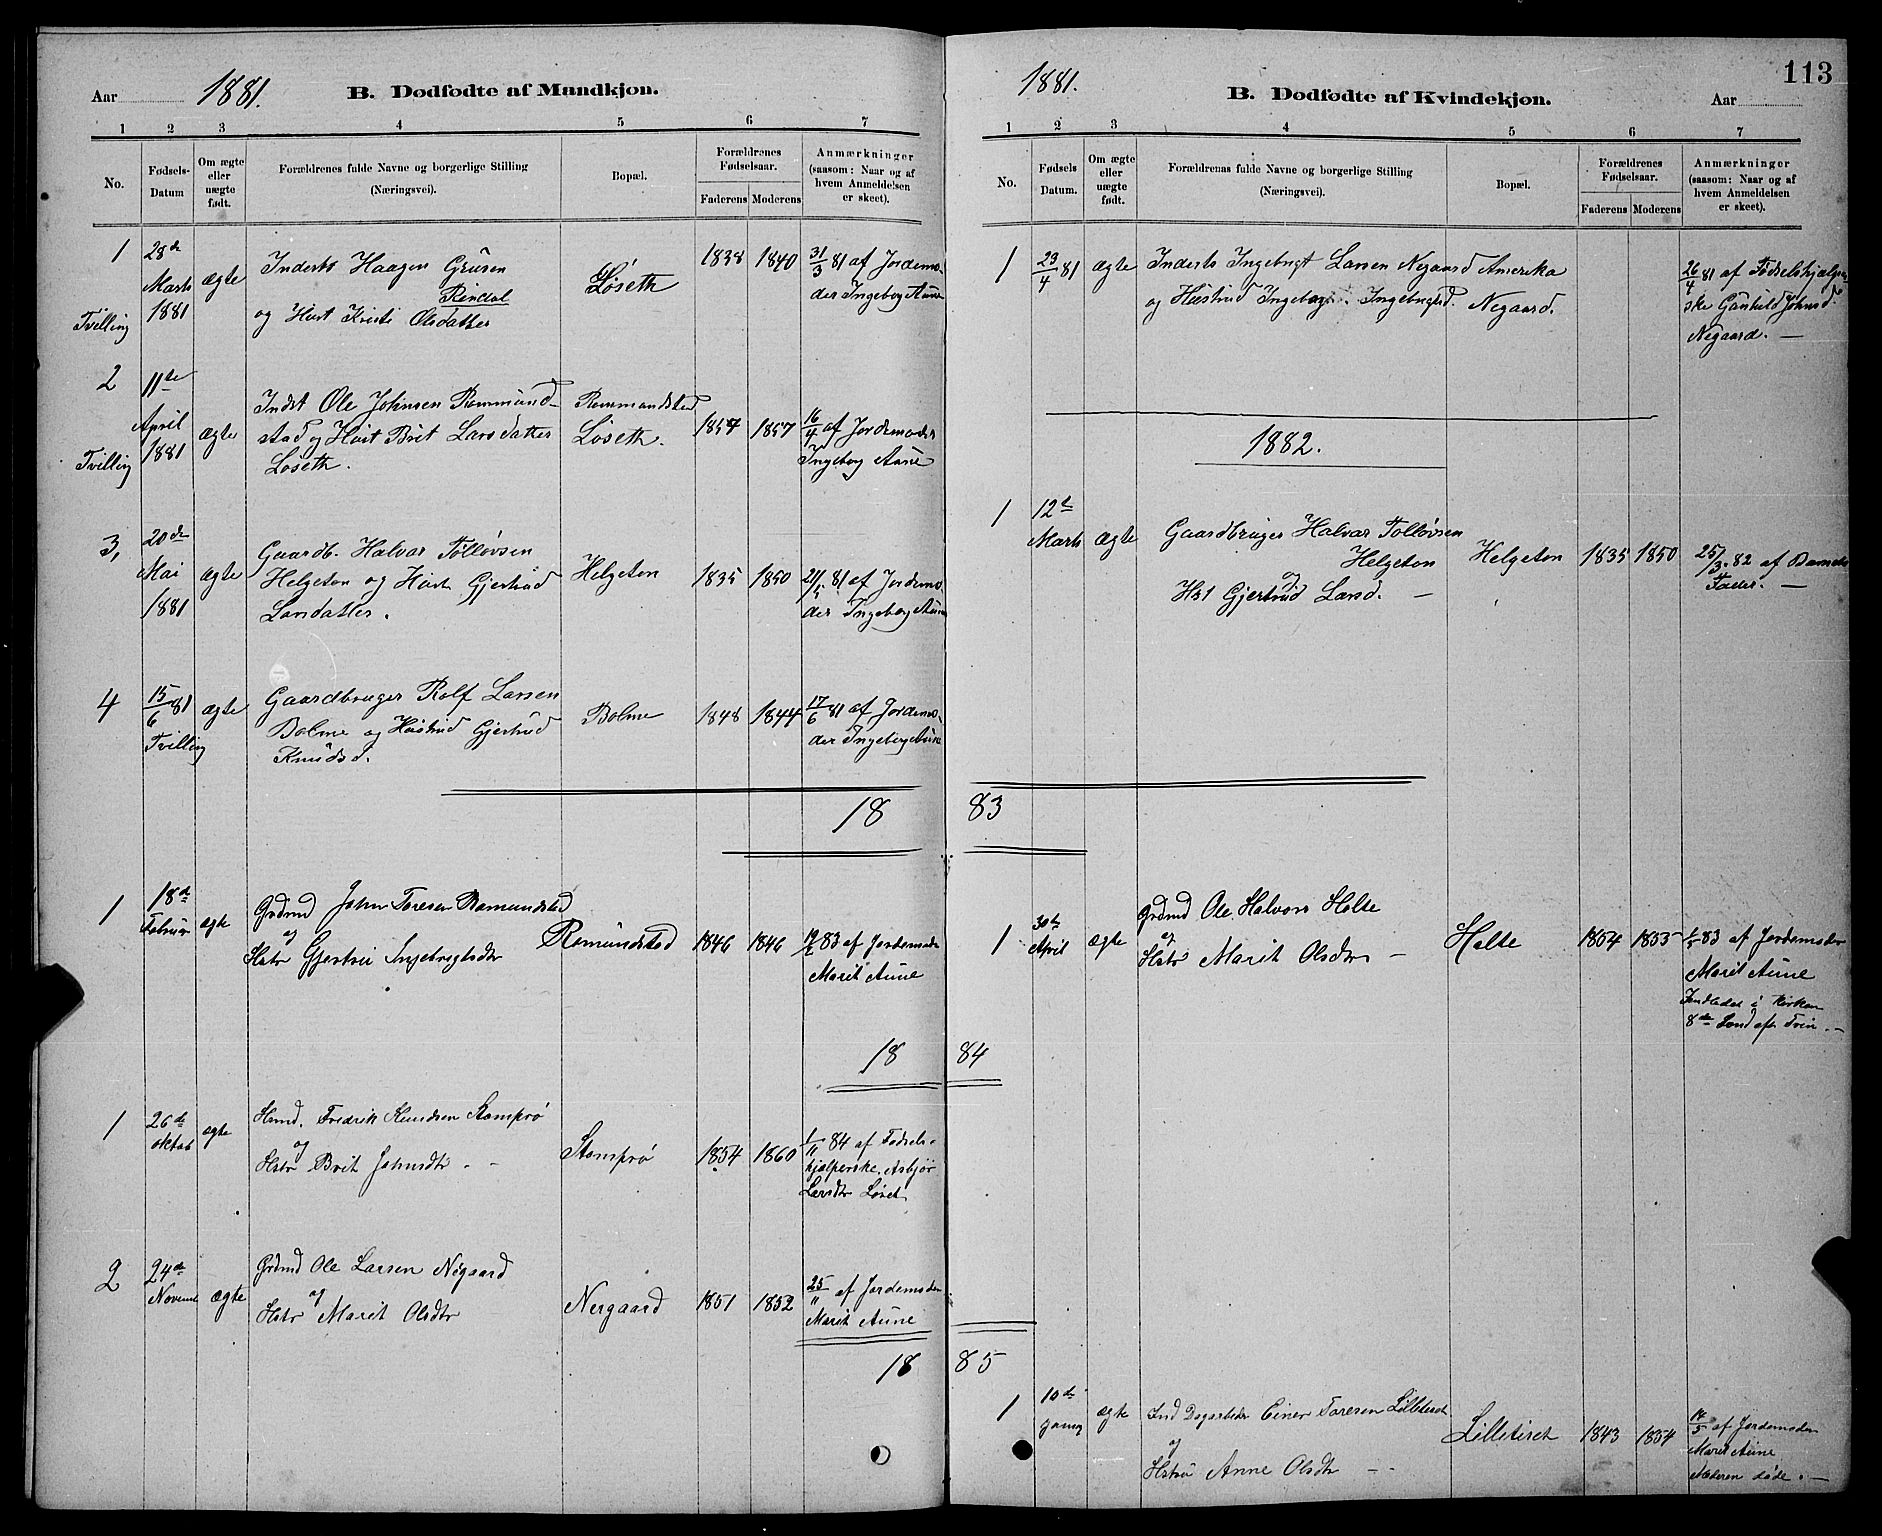 Aar 1881. B. Dødfødte af Mandkjøn.
1 2 3 4 5 6 7
No. Fødsels-Datum Om ægte eller uægte født. Forældrenes fulde Navne og borgerlige Stilling (Næringsvei). Bopæl. Forældrenes Fødselsaar. Faderens Moderens Anmærkninger (saasom: Naar og af hvem Anmeldelsen er skeet).
1 28de Marts 1881 ægte
Tvilling
Inderst Haagen Grüsen
Rindal
og Hust Kristi Olsdatter
Løseth
1838 1840
31/3 81 af Jordemo-
der Ingeborg Aune
2 11te April 1881 ægte
Tvilling
Indst Ole Johnsen Rommund-
stad og Hust Brit Larsdatter
Løseth.
Rommundstad
Løseth.
1854 1857
16/4 af Jordemoder
Ingeborg Aune
3, 20de Mai 1881 ægte
Gaardb. Halvar Tølløvsen
Helgeton og Hust Gjertrud
Larsdatter.
Helgeton
1835 1850
21/5 81 af Jordemo-
der Ingeborg Aune
4 15/6 81 ægte
Tvilling
Gaardbruger Rolf Larsen
Bolme og Hustrud Gjertrud
Knudsd.
Bolme
1848 1844
17/6 81 af Jordemo-
der Ingeborg Aune
18 83
1 18de Februar ægte
Grdmd John Toresen Romundstad
og
Hstr Gjertru Ingebrigtsdtr
Romundstad
1846 1846
19/2 83 af Jordemoder
Marit Aune
18 84
1 26de oktob ægte
Hsmd. Fredrik Knudsen Stomprø
og
Hstr Brit Johnsdtr. -
Stomprø
1854 1860
1/11 84 af Fødsels-
hjælperske, Asbjør
Larsdtr Løset
2 24de Novemb ægte
Grdmd Ole Larsen Negaard
og
Hstr Marit Olsdtr
Nergaard
1851 1852
25/11 af Jordemoder
Marit Aune
18 85
1881. B. Dødfødte af Kvindekjøn. Aar 113
1 2 3 4 5 6 7
No. Fødsels Datum. Om ægte eller uægte født. Forældrenes fulde Navne og borgerlige Stilling (Næringsvei). Bopæl. Forældrenes Fødselsaar. Faderens Moderens Anmærkninger (saasom: Naar og af hvem Anmeldelsen er skeet).
1 23/4 81 ægte
Inderts Ingebrigt Larsen Negaard Amerika
og Hustrud Ingeborg Ingebrigtsd. Negaard.
26/4 81 af Fødselshjælper-
ske Gunhild Johnsd.
Negaard. —
1882.
1 12te Marts ægte
Gaardbruger Halvar Tølløvsen
Helgeton
og
Hst Gjertrud Larsd. —
Helgeton
1835 1850
25/3. 82 af Barnets
Fader. —
1 30te April ægte
Grdmd Ole Halvors Holte
og
Hstr Marit Olsdtr —
Holte
1854 1855
1/5 83 af Jordemoder
Marit Aune
Indledet i Kirken
8de Sønd eft Trin. —
1 10de ægte
Ind Dagarbeider Einer Toresen Lilletiset
og
Hstru Anne Olsdtr - -
Lilletiset
1843 1854
14/5 af Jordemoder
Marit Aune
Moderen døde. —